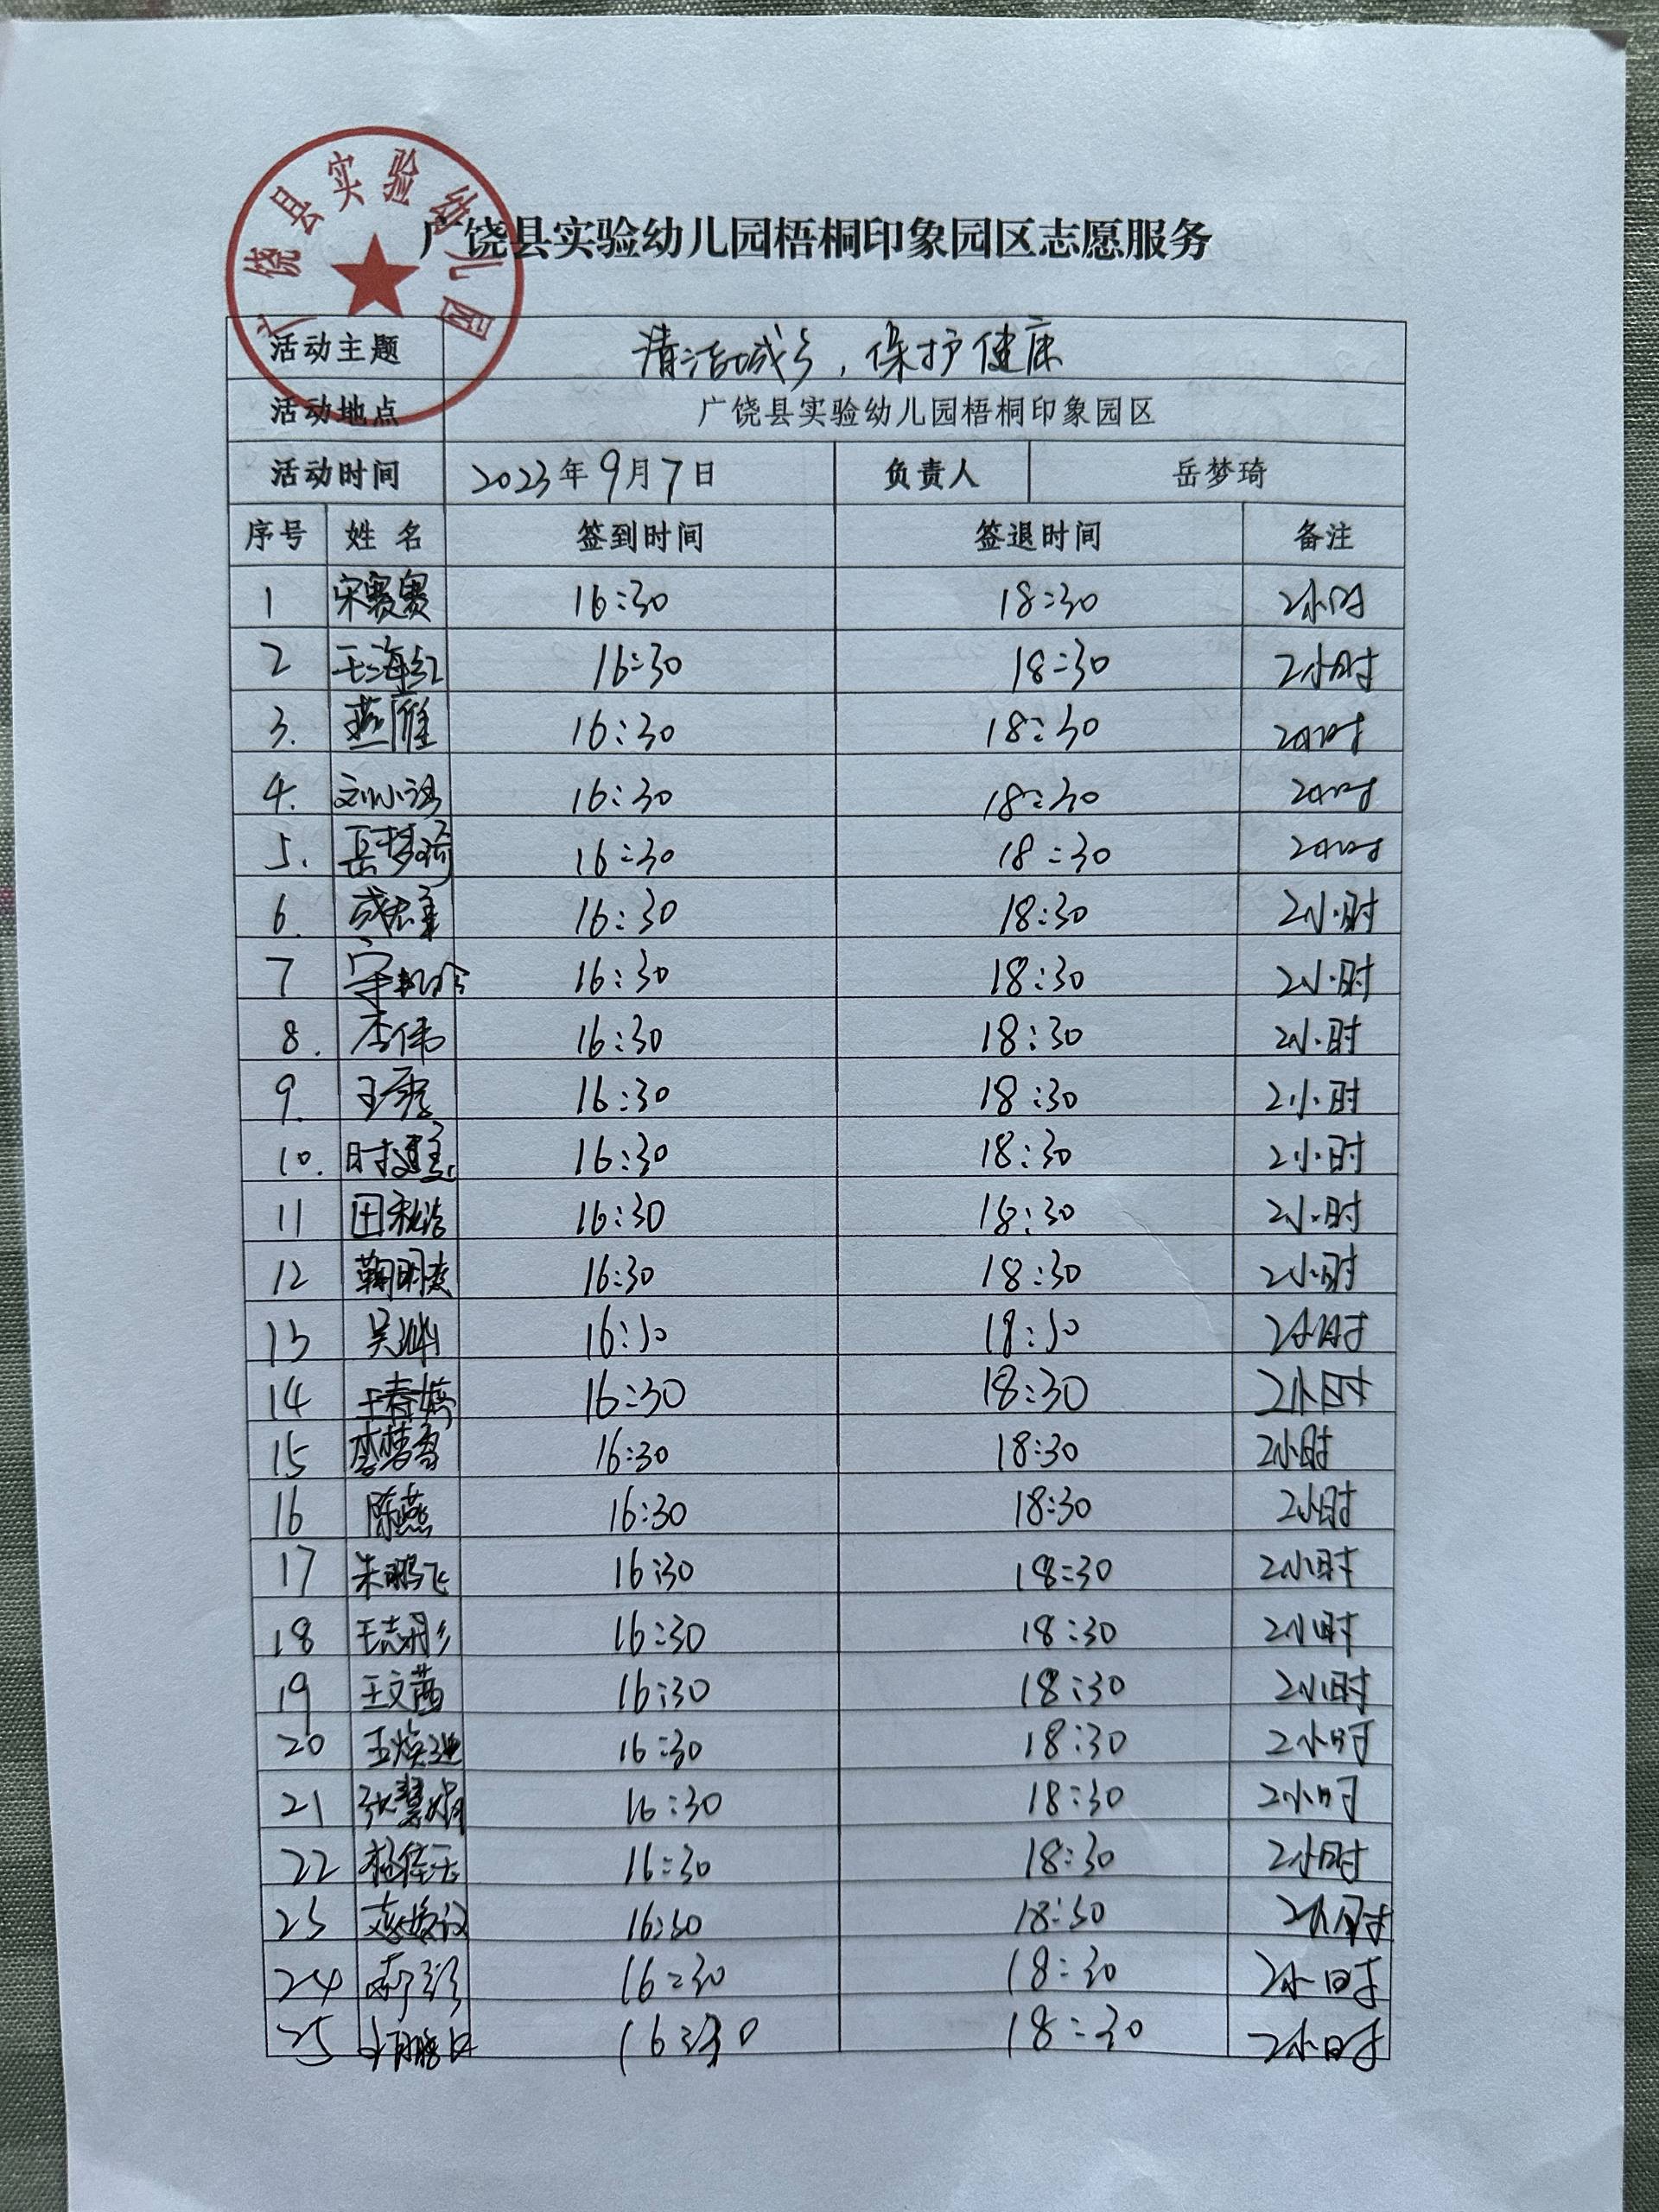 广饶县实验幼儿园
广饶县实验幼儿园梧桐印象园区志愿服务
活动主题 清洁城乡，保护健康
活动地点 广饶县实验幼儿园梧桐印象园区
活动时间 2023年9月7日 负责人 岳梦琦
序号 姓名 签到时间 签退时间 备注
1 宋赛赛 16:30 18:30 2小时
2 王海红 16:30 18:30 2小时
3. 燕雁 16:30 18:30 2小时
4. 刘小 16:30 18:30 2小时
5. 岳梦琦 16:30 18:30 2小时
6. 16:30 18:30 2小时
7 16:30 18:30 2小时
8. 李伟 16:30 18:30 2小时
9. 王秀 16:30 18:30 2小时
10. 时 16:30 18:30 2小时
11 田秋 16:30 18:30 2小时
12 鞠明 16:30 18:30 2小时
13 吴 16:30 18:30 2小时
14 王春婷 16:30 18:30 2小时
15 李梦雪 16:30 18:30 2小时
16 陈燕 16:30 18:30 2小时
17 朱鹏飞 16:30 18:30 2小时
18 王志 16:30 18:30 2小时
19 王文茜 16:30 18:30 2小时
20 王焕迪 16:30 18:30 2小时
21 张慧娟 16:30 18:30 2小时
22 16:30 18:30 2小时
23 16:30 18:30 2小时
24 16:30 18:30 2小时
25 16:30 18:30 2小时